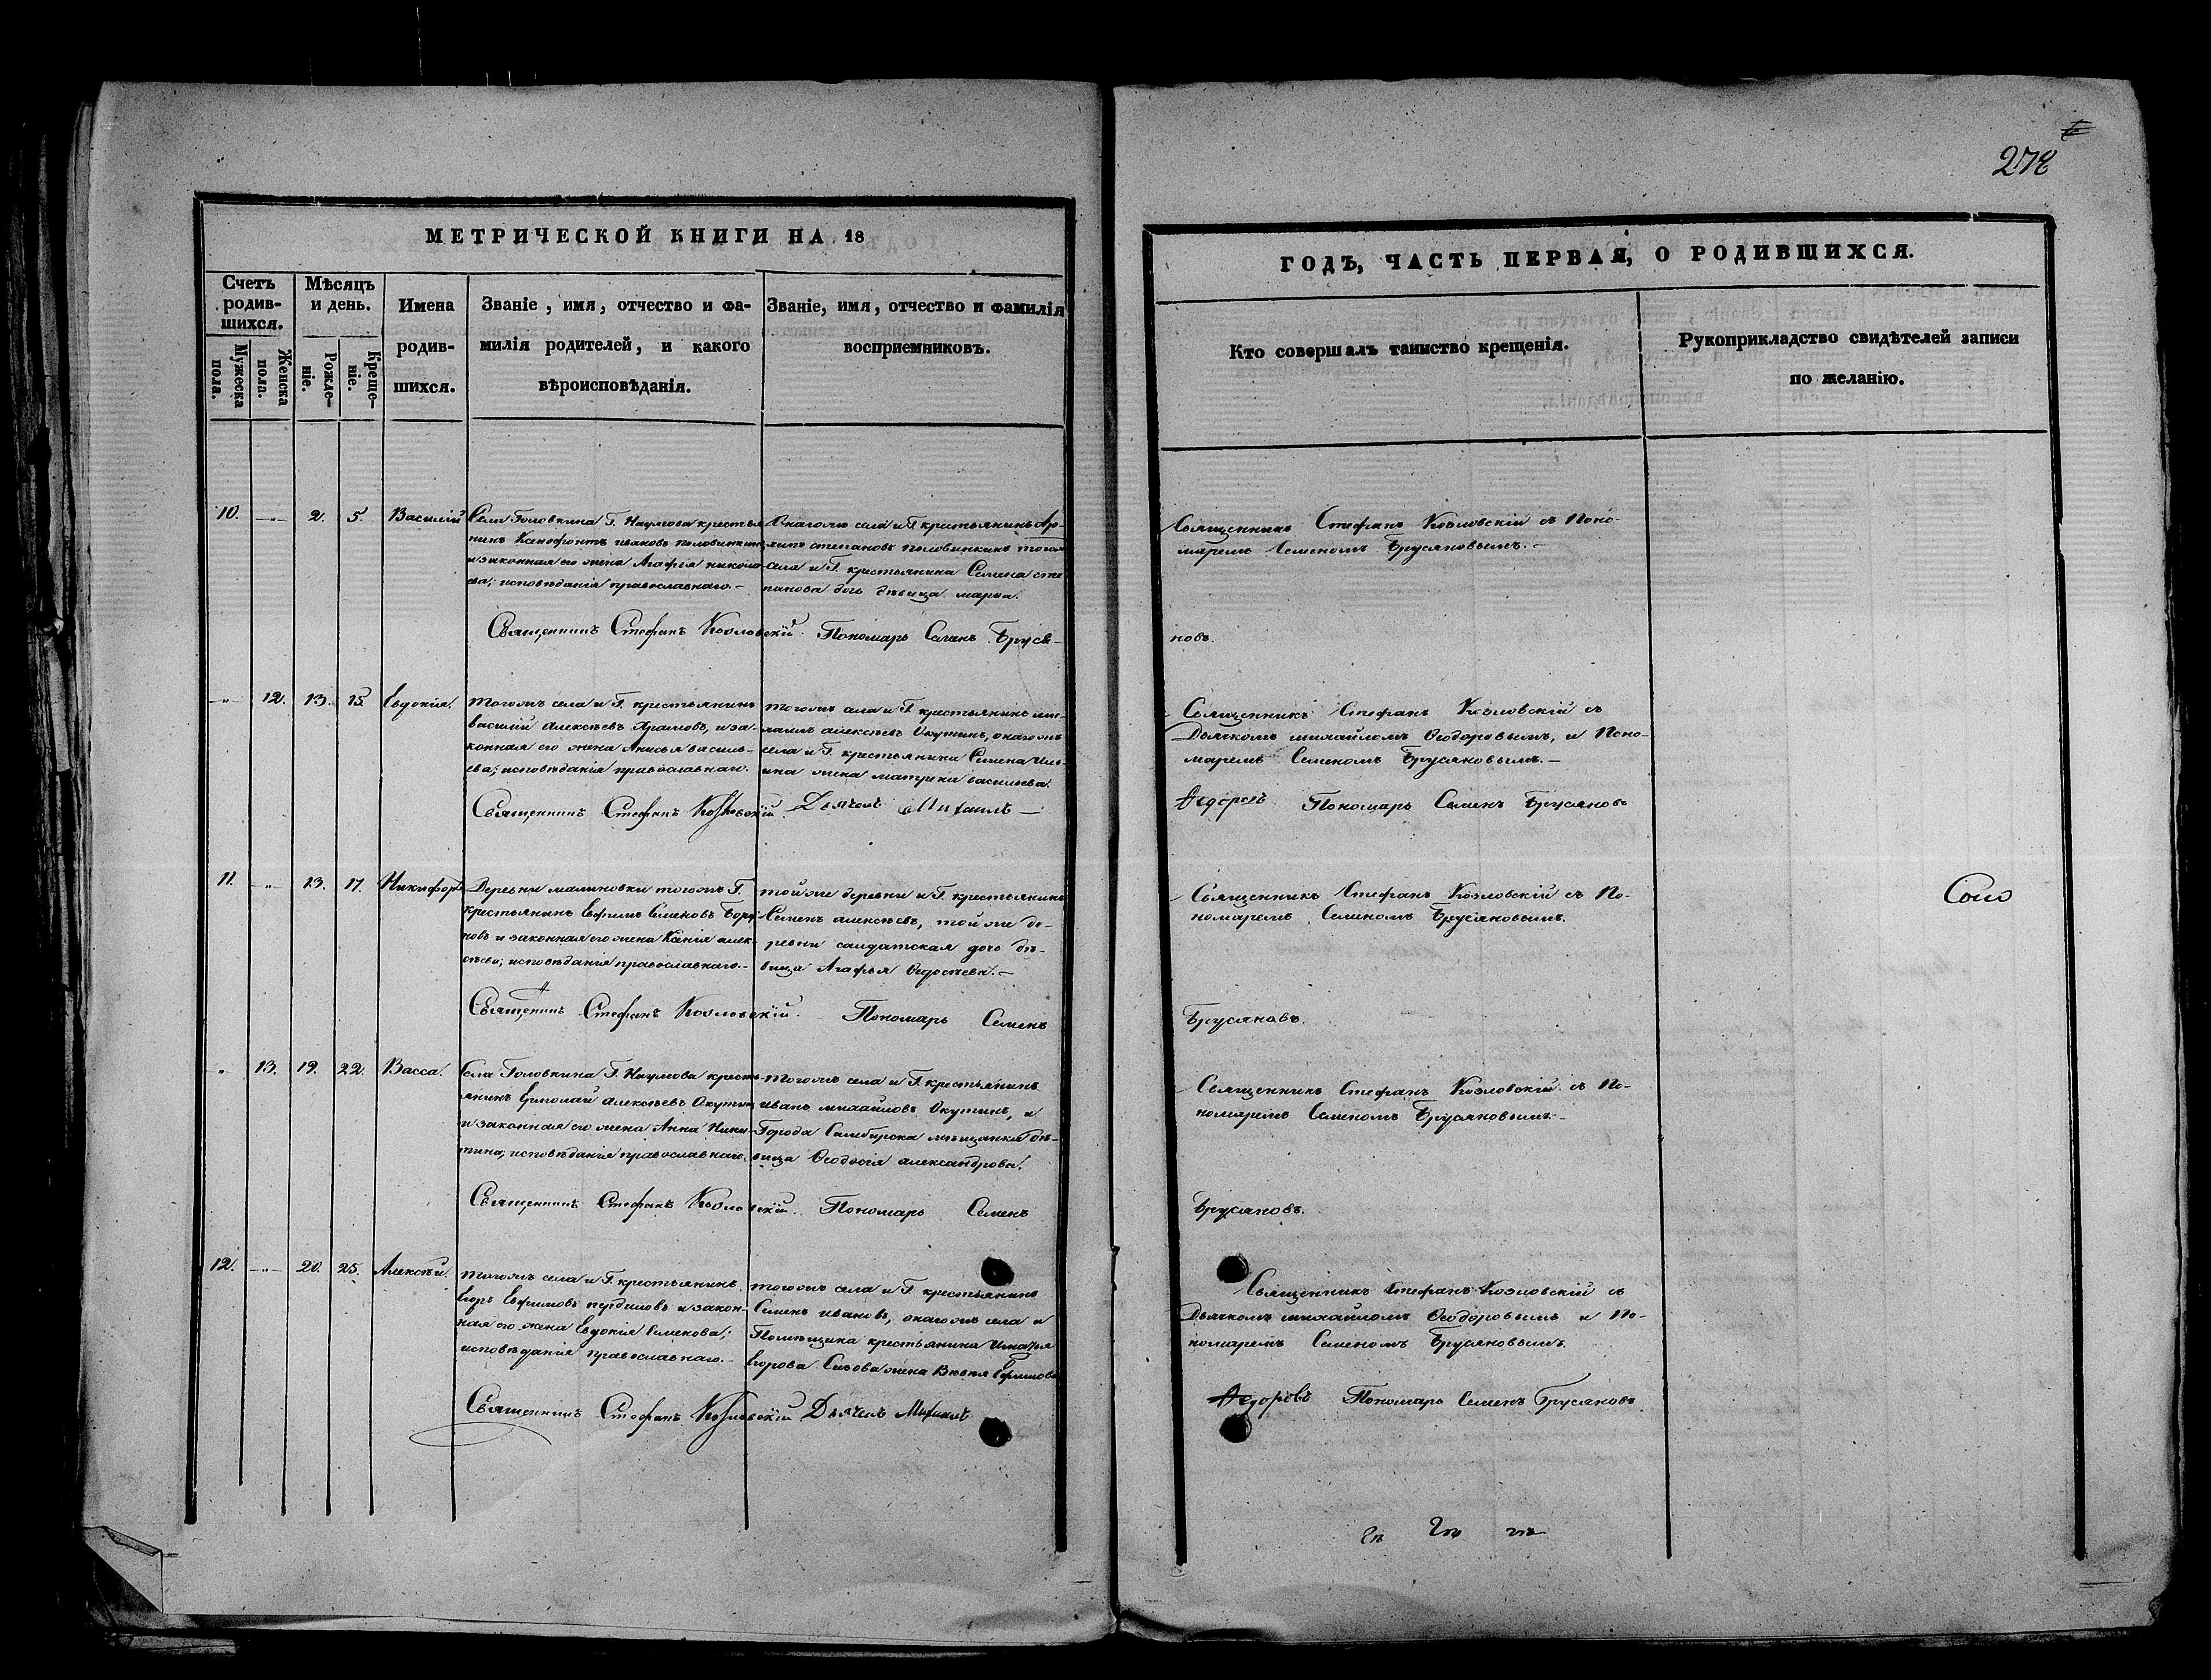 278
МЕТРИЧЕСКОЙ КНИГИ НА 18
Счетъ родив-шихся.
Мужеска пола.
Женска пола.
Мѣсяцъ и день.
Рожде-ніе.
Креще-ніе.
Имена родив-шихся.
Званіе, имя, отчество и фа-
милія родителей, и какого
вѣроисповѣданія.
Званіе, имя, отчество и фамилія
восприемниковъ.
ГОДЪ, ЧАСТЬ ПЕРВАЯ, О РОДИВШИХСЯ.
Кто совершалъ таинство крещенія.
Рукоприкладство свидѣтелей записи
по желанію.
10. —„— 2. 5. Василій
Села Головкина Г. Наумова крестья
нинъ Ксенофонтъ ивановъ половинкинъ
и законная его жена Агафія никола
ева; исповѣданія православнаго.—
Онагожъ села и Г. крестьянинъ Ар-
хипъ степановъ половинкинъ тогожъ
села и Г. крестьянина Семена сте
панова дочь дѣвица марѳа.
Священникъ Стефанъ Козловскій съ Поно-
маремъ Семеномъ Брусяновымъ.—
Священникъ Стефанъ Козловскій. Пономарь Семенъ Бруся-
новъ.
—„— 12. 13. 15. Евдокія.
тогожъ села и Г. крестьянинъ
василій Алексѣевъ Храмовъ, и за-
конная его жена Анисья василь-
ева; исповѣданія православнаго.
тогожъ села и Г. крестьянинъ
алексѣевъ Окутинъ, онагожъ
села и Г. крестьянина Семена
ина жена матрена васильева.
Священникъ Стефанъ Козловскій съ
Дьячкомъ михайломъ Ѳеодоровымъ, и Поно-
маремъ Семеномъ Брусяновымъ.—
Священникъ Стефанъ Козловскій. Дьячекъ Михаилъ —
Ѳедоровъ Пономарь Семенъ Брусяновъ
11. —„— 13. 17. Никифоръ
Деревни малиновки тогожъ Г.
крестьянинъ Ефимъ Семеновъ
новъ и законная его жена Ксенія алек-
сѣева; исповѣданія православнаго.—
тойже деревни и Г. крестьянинъ
Семенъ алексѣевъ, тойже де-
ревни салдатская дочь дѣ-
вица Агафья Ѳедосѣева.—
Священникъ Стефанъ Козловскій съ По-
номаремъ Семеномъ Брусяновымъ.
Священникъ Стефанъ Козловскій. Пономарь Семенъ
Брусяновъ.
„ 13. 19. 22. Васса.
Села Головкина Г. Наумова кресть-
янинъ Ермолай алексѣевъ Окутинъ
и законная его жена Анна Ники-
тина; исповѣданія православнаго.
тогожъ села и Г. крестьянинъ
иванъ михайловъ Окутинъ, и
Города Симбирска мѣщанка дѣ-
вица Ѳеодосія александрова.
Священникъ Стефанъ Козловскій съ По-
номаремъ Семеномъ Брусяновымъ.—
Священникъ Стефанъ Козловскій. Пономарь Семенъ
Брусяновъ.
12. —„— 20. 25. Алексѣй.
тогожъ села и Г. крестьянинъ
Егоръ Ефимовъ и закон-
ная его жена Евдокія Семенова;
исповѣданія православнаго.—
тогожъ села и Г. крестьянинъ
Семенъ ивановъ, онагожъ села и
Помѣщика крестьянина игнатья
Егорова Сизова жена Ефимова
Священникъ Стефанъ Козловскій съ
Дьячкомъ михайломъ Ѳеодоровымъ и По-
номаремъ Семеномъ Брусяновымъ.
Священникъ Стефанъ Козловскій Дьячекъ Михаилъ
Ѳедоровъ Пономарь Семенъ Брусяновъ